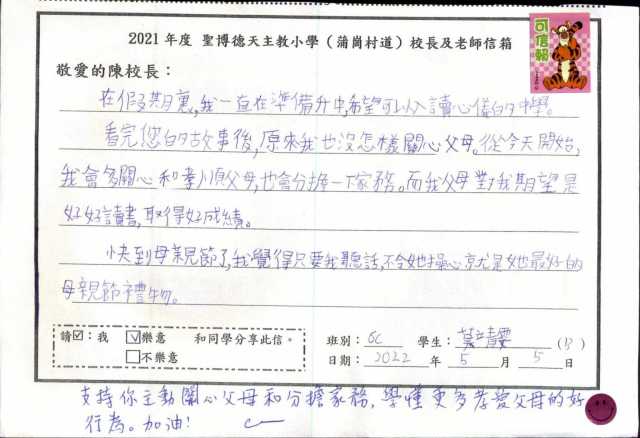 2021年度 聖博德天主教小學（蒲崗村道）校長及老師信箱
可信賴
敬愛的陳校長：
在假期裏,我一直在準備升中,希望可以入讀心儀的中學。
看完您的故事後,原來我也沒怎樣關心父母。從今天開始,
我會多關心和孝順父母,也會分擔一下家務。而我父母對我期望是
好好讀書,取得好成績。
快到母親節了,我覺得只要我聽話,不令她操心就是她最好的
母親節禮物。
請☑：我 ☑樂意 和同學分享此信。
□不樂意
班別：6C 學生：
日期：2022 年 5 月 5 日
支持你主動關心父母和分擔家務,學懂更多孝愛父母的好
行為。加油!